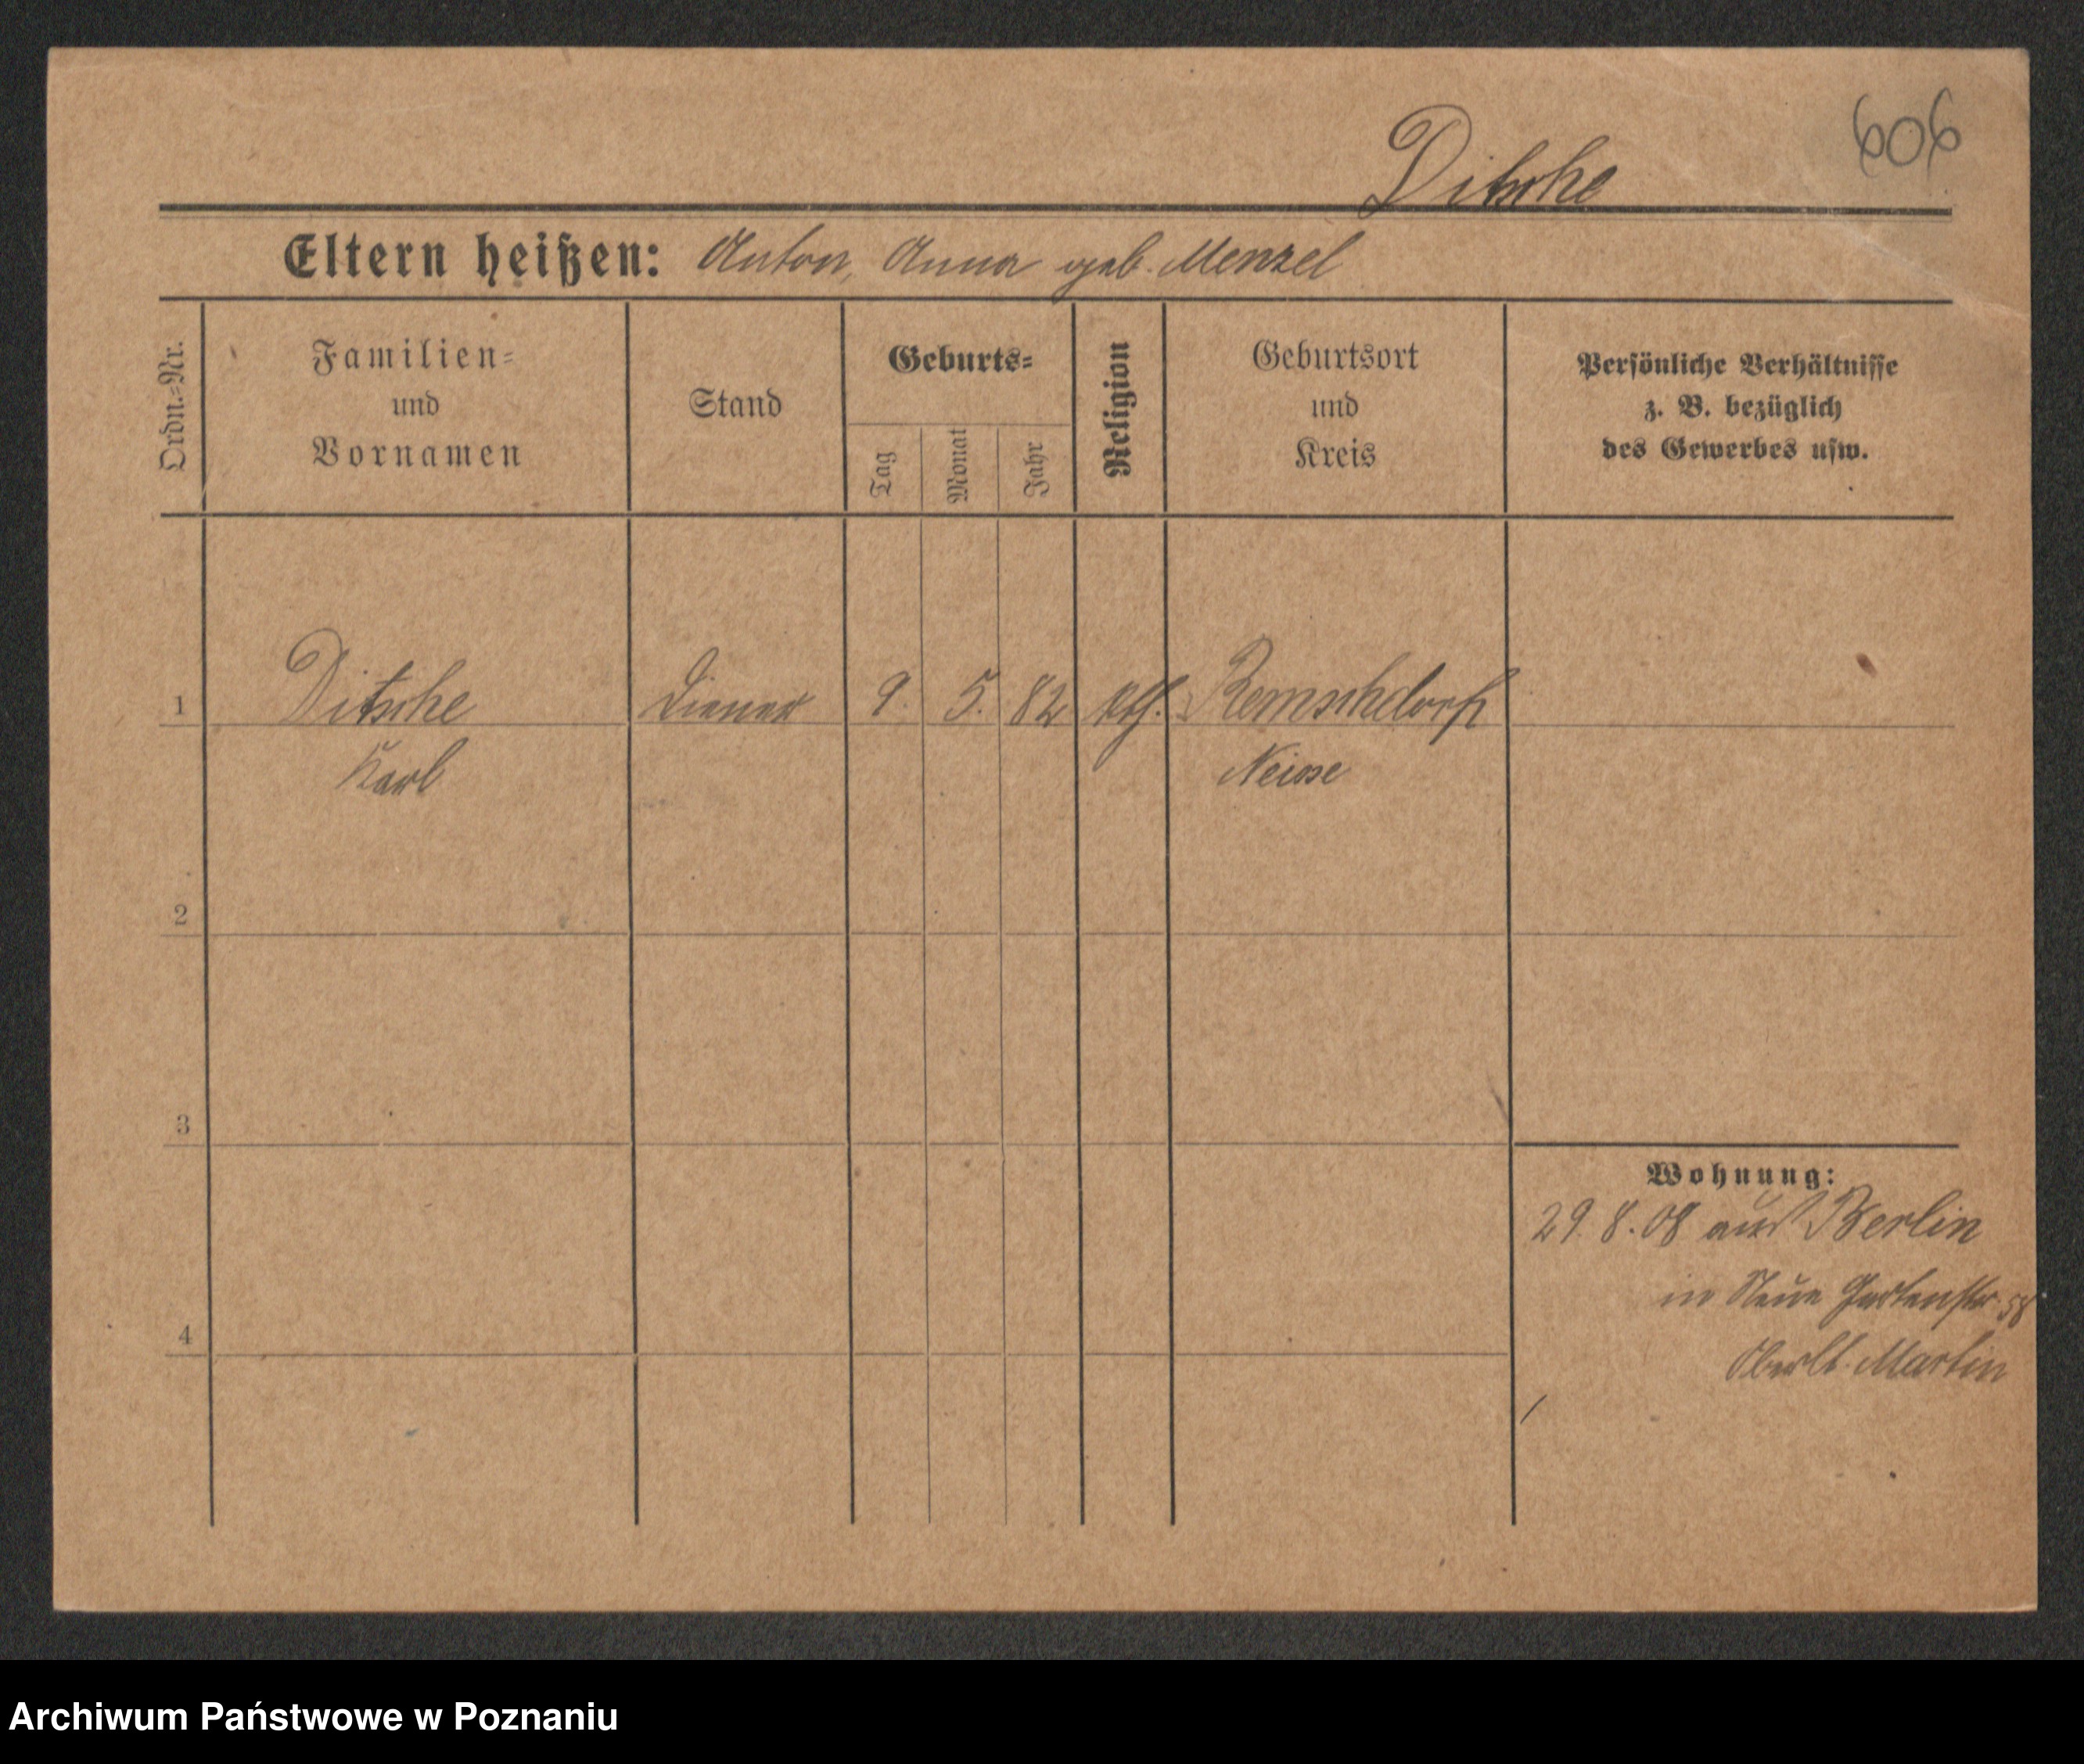 606
Ditsche
Eltern heißen: Anton, Anna geb. Menzel
Ordn.=Nr.
Familien=
und
Vornamen
Stand
Geburts=
Tag
Monat
Jahr
Religion
Geburtsort
und
Kreis
Persönliche Verhältnisse
z. B. bezüglich
des Gewerbes usw.
1 Ditsche Diener 9. 5. 82 kth.
Karl Neisse
2
3
4
Wohnung:
29. 8. 08 aus Berlin
in Neue Gartenstr. 58
Oberlt. Martin
Archiwum Państwowe w Poznaniu